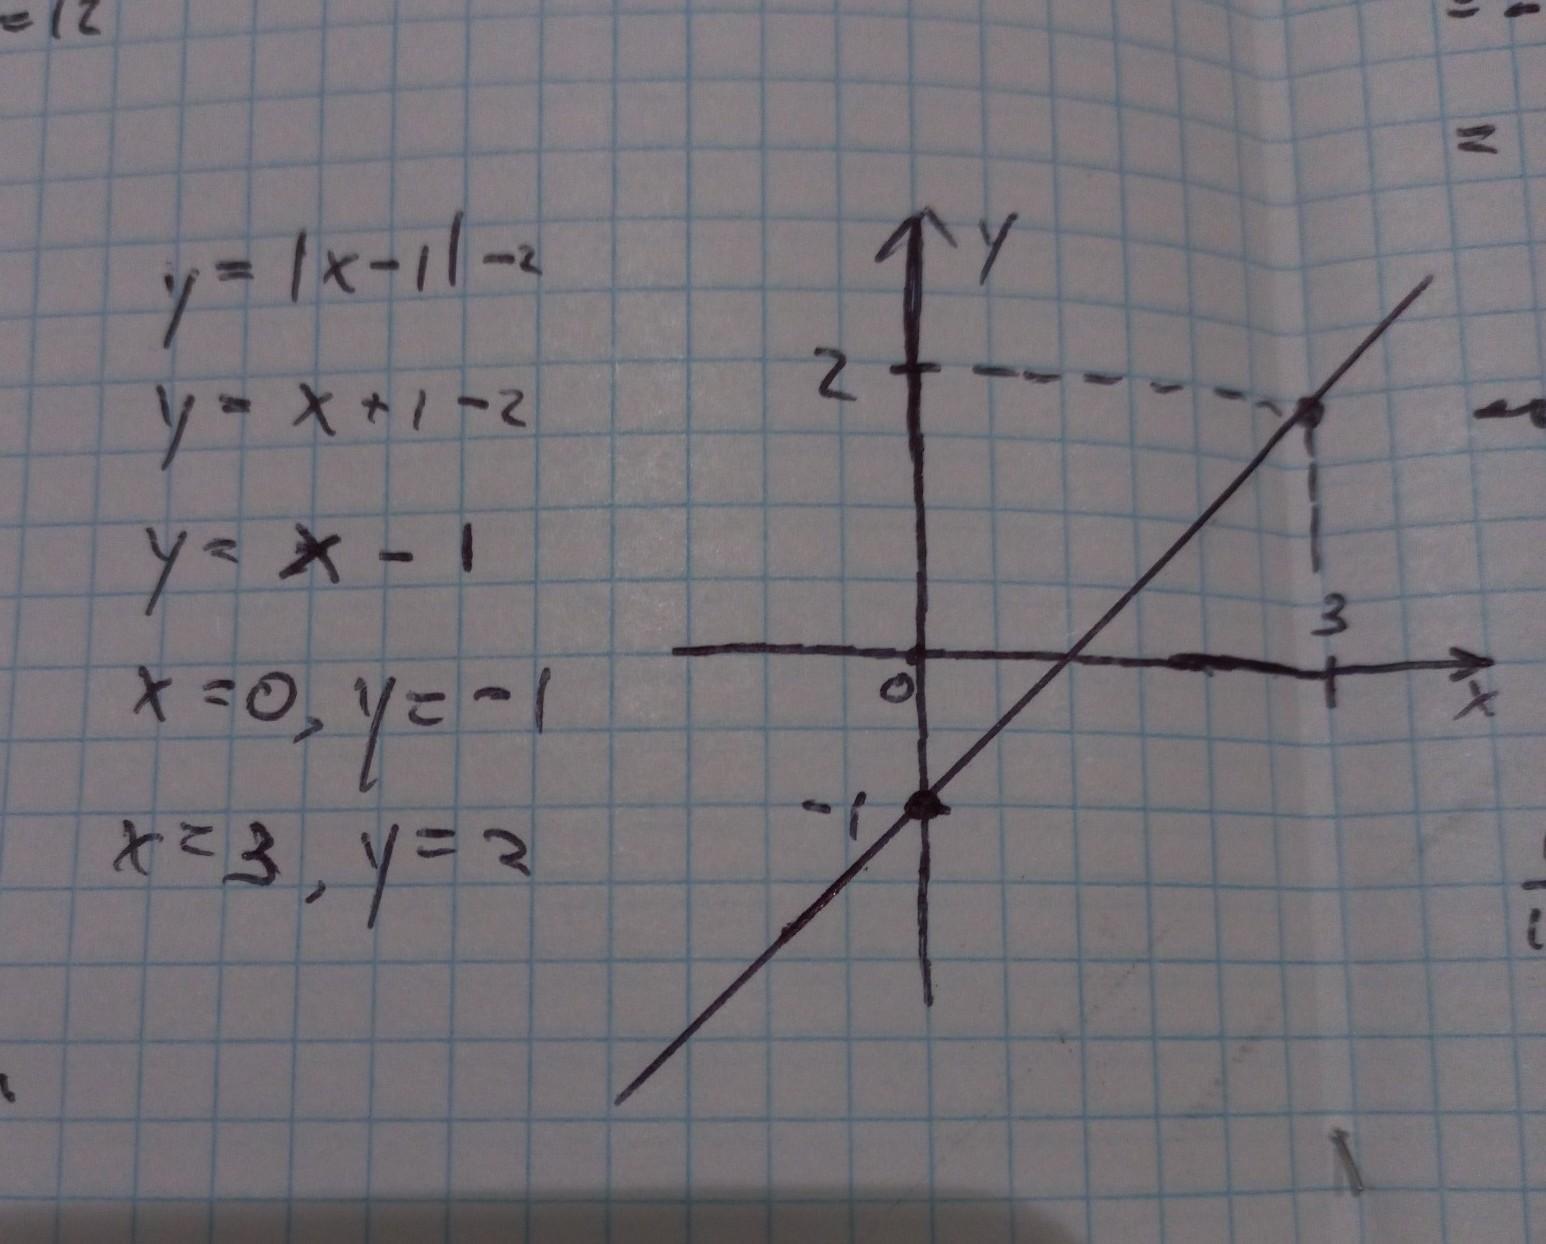 =12
= -
=
y = |x-1| -2
y = x + 1 - 2
y = x - 1
x = 0, y = -1
x = 3, y = 2
y
2
3
0
x
-1